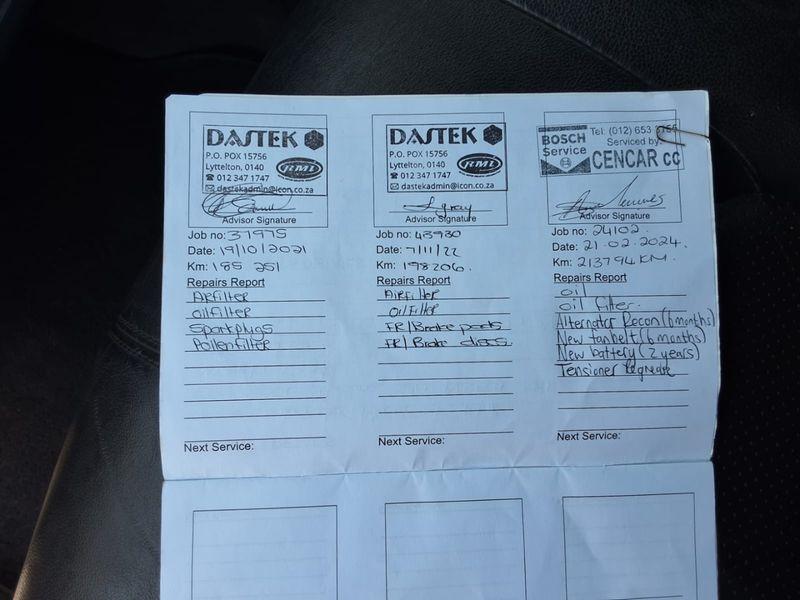 DASTEK
P.O. POX 15756
Lyttelton, 0140
RMI
012 347 1747
dastekadmin@icon.co.za
Advisor Signature
Job no: 37975
Date: 19/10/2021
Km: 185 251
Repairs Report
Airfilter
oilfilter
Sparkplugs
Pollenfilter
Next Service:
DASTEK
P.O. POX 15756
Lyttelton, 0140
RMI
012 347 1747
dastekadmin@icon.co.za
Advisor Signature
Job no: 43930
Date: 7/11/22
Km: 198206.
Repairs Report
Airfilter
Oilfilter
FR/Brake pads
FR/Brake discs
Next Service:
BOSCH
Service
Tel: (012) 653
Serviced by:
CENCAR cc
Advisor Signature
Job no: 24102.
Date: 21-02-2024.
Km: 213794KM.
Repairs Report
oil
oil filter.
Alternator Recon (6 months)
New fanbelt (6 months)
New battery (2 years)
Tensioner
Next Service: